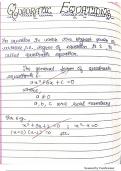 Quadratic Equations
An equation in which the highest power of
variable i.e. degree of equation is 2 is
called quadratic equation.
The general form of quadratic
equation is
ax² + bx + c = 0
where
a ≠ 0
a, b, c are real numbers
For e.g.